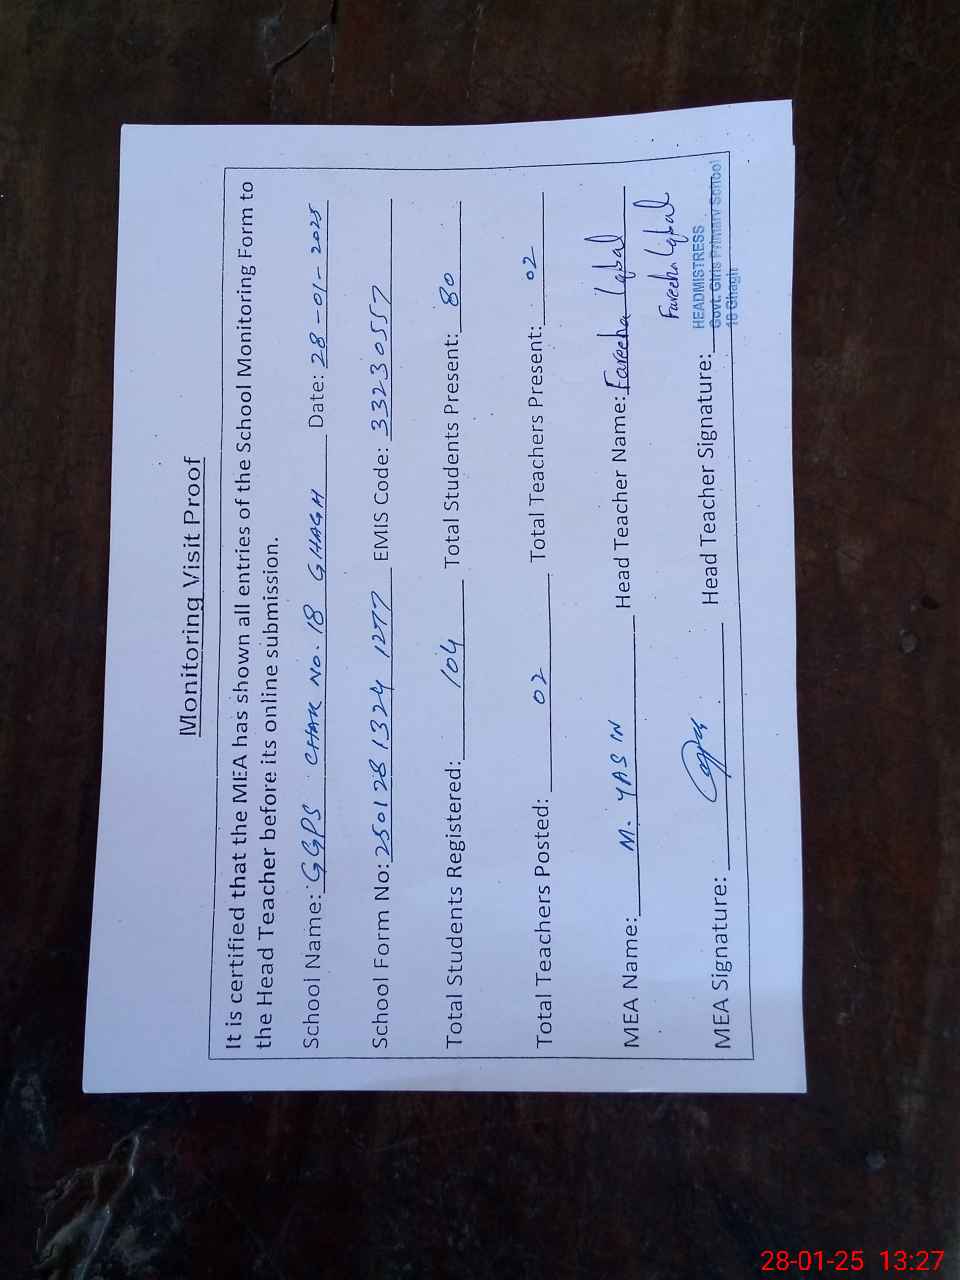 Monitoring Visit Proof
It is certified that the MEA has shown all entries of the School Monitoring Form to
the Head Teacher before its online submission.
School Name: GGPS CHAK NO. 18 GHAGH Date: 28-01-2025
School Form No: 250128 1324 1277 EMIS Code: 33230557
Total Students Registered: 104 Total Students Present: 80
Total Teachers Posted: 02 Total Teachers Present: 02
MEA Name: M. YASIN Head Teacher Name: Fareeha Iqbal
Fareeha Iqbal
MEA Signature: Head Teacher Signature:
HEADMISTRESS
Govt. Girls Primary School
18 Ghagh
28-01-25 13:27